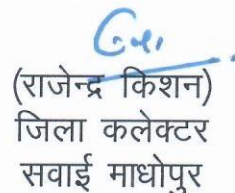 (राजेन्द्र किशन)
जिला कलेक्टर
सवाई माधोपुर